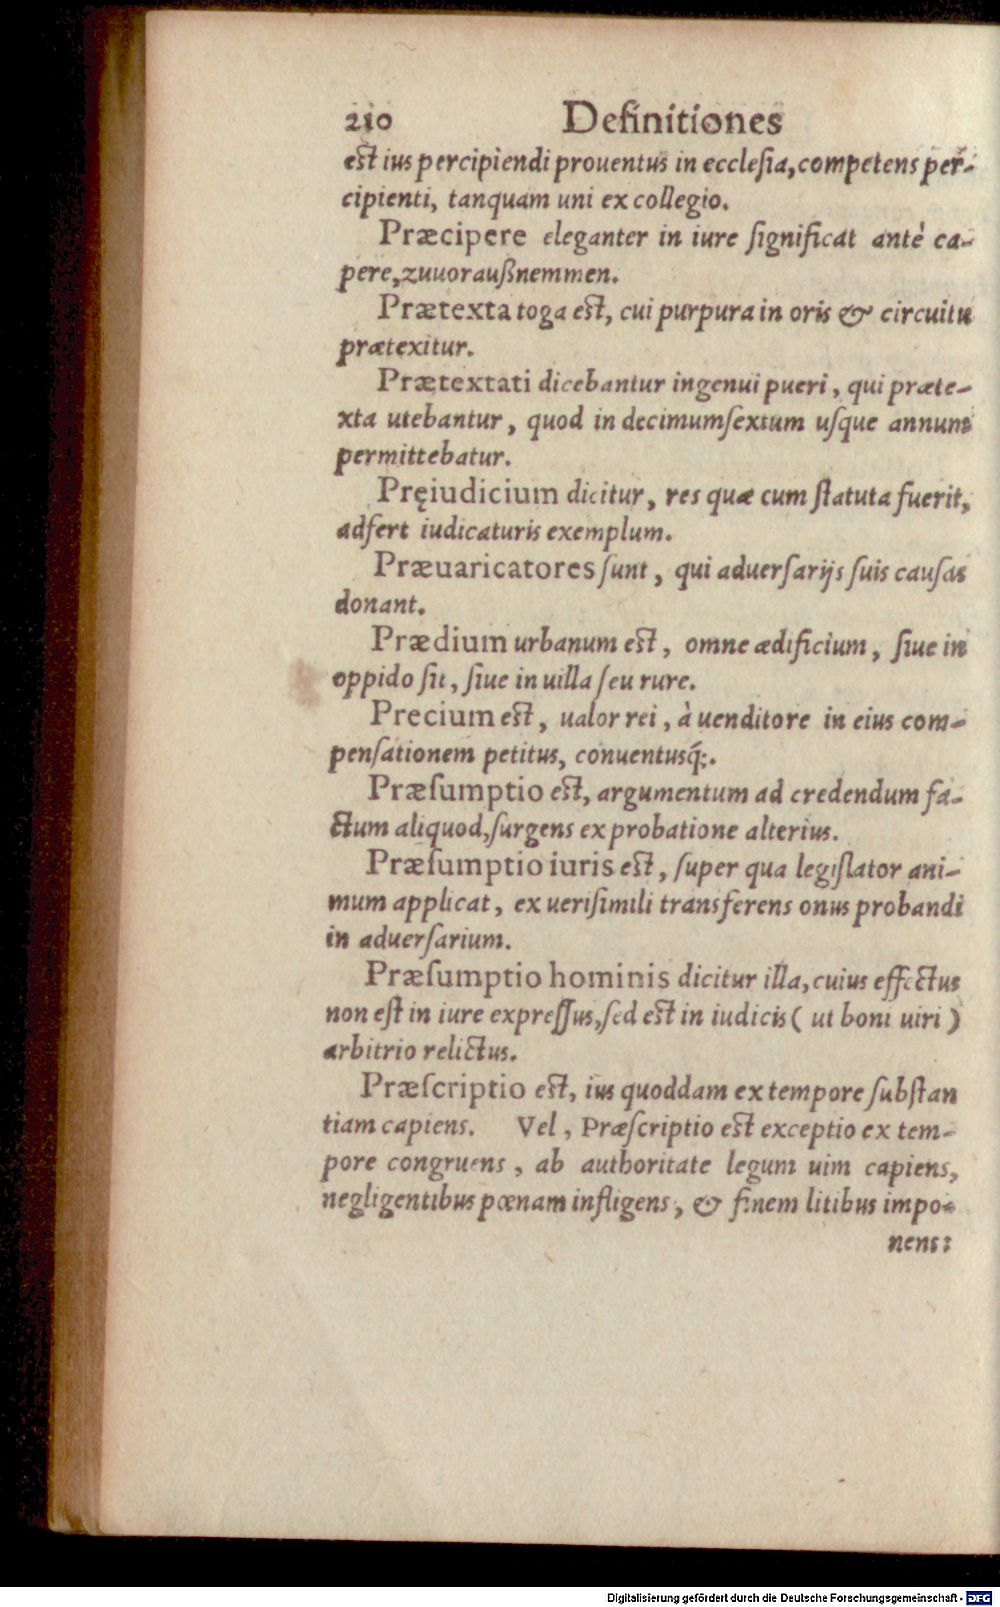 210 Definitiones
est ius percipiendi prouentus in ecclesia, competens per-
cipienti, tanquam uni ex collegio.
Præcipere eleganter in iure significat antè ca-
pere, zuuoraußnemmen.
Prætexta toga est, cui purpura in oris & circuitu
prætexitur.
Prætextati dicebantur ingenui pueri, qui præte-
xta utebantur, quod in decimumsextum usque annum
permittebatur.
Pręiudicium dicitur, res quæ cum statuta fuerit,
adfert iudicaturis exemplum.
Præuaricatores sunt, qui aduersarijs suis causas
donant.
Prædium urbanum est, omne ædificium, siue in
oppido sit, siue in uilla seu rure.
Precium est, ualor rei, à uenditore in eius com-
pensationem petitus, conuentusq́;.
Præsumptio est, argumentum ad credendum fa-
ctum aliquod, surgens ex probatione alterius.
Præsumptio iuris est, super qua legislator ani-
mum applicat, ex uerisimili transferens onus probandi
in aduersarium.
Præsumptio hominis dicitur illa, cuius effectus
non est in iure expressus, sed est in iudicis ( ut boni uiri )
arbitrio relictus.
Præscriptio est, ius quoddam ex tempore substan
tiam capiens. Vel, Præscriptio est exceptio ex tem-
pore congruens, ab authoritate legum uim capiens,
negligentibus pœnam infligens, & finem litibus impo-
nens:
Digitalisierung gefördert durch die Deutsche Forschungsgemeinschaft - DFG